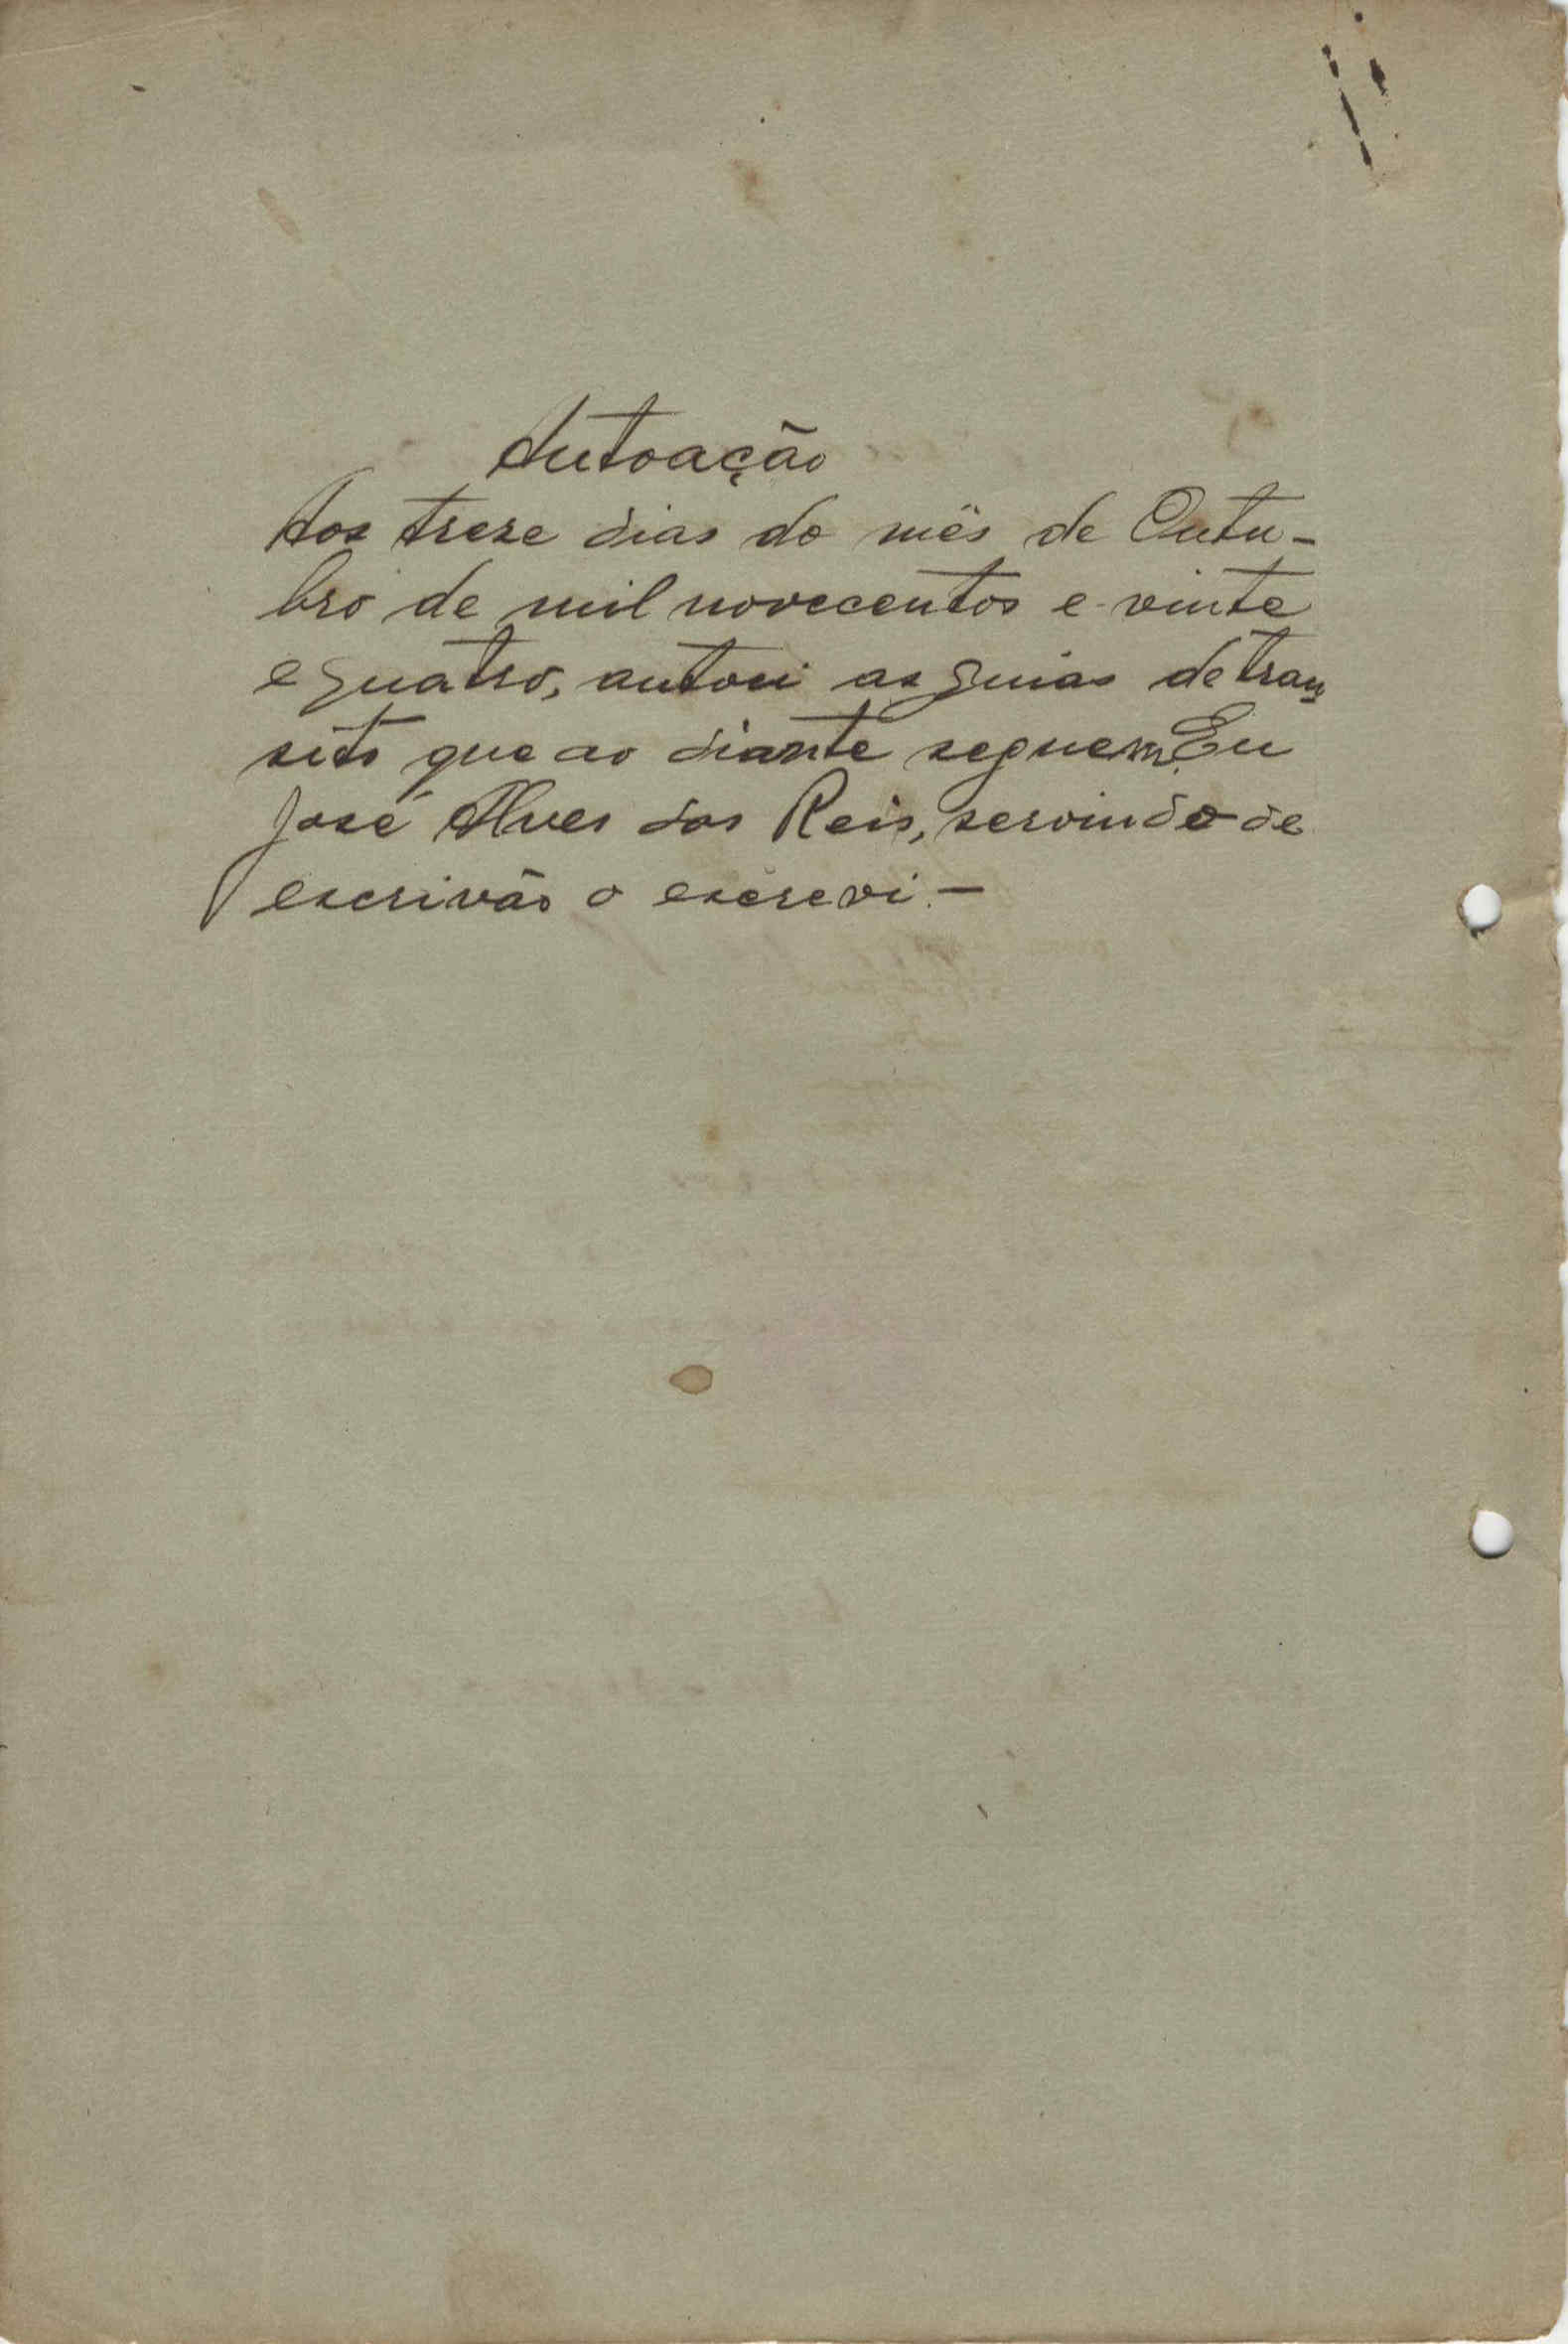 Autoação
Aos treze dias do mês de Outu-
bro de mil novecentos e vinte
e quatro, autoei as guias de tran
sito que ao diante seguem. Eu
José Alves dos Reis, servindo de
escrivão o escrevi.-